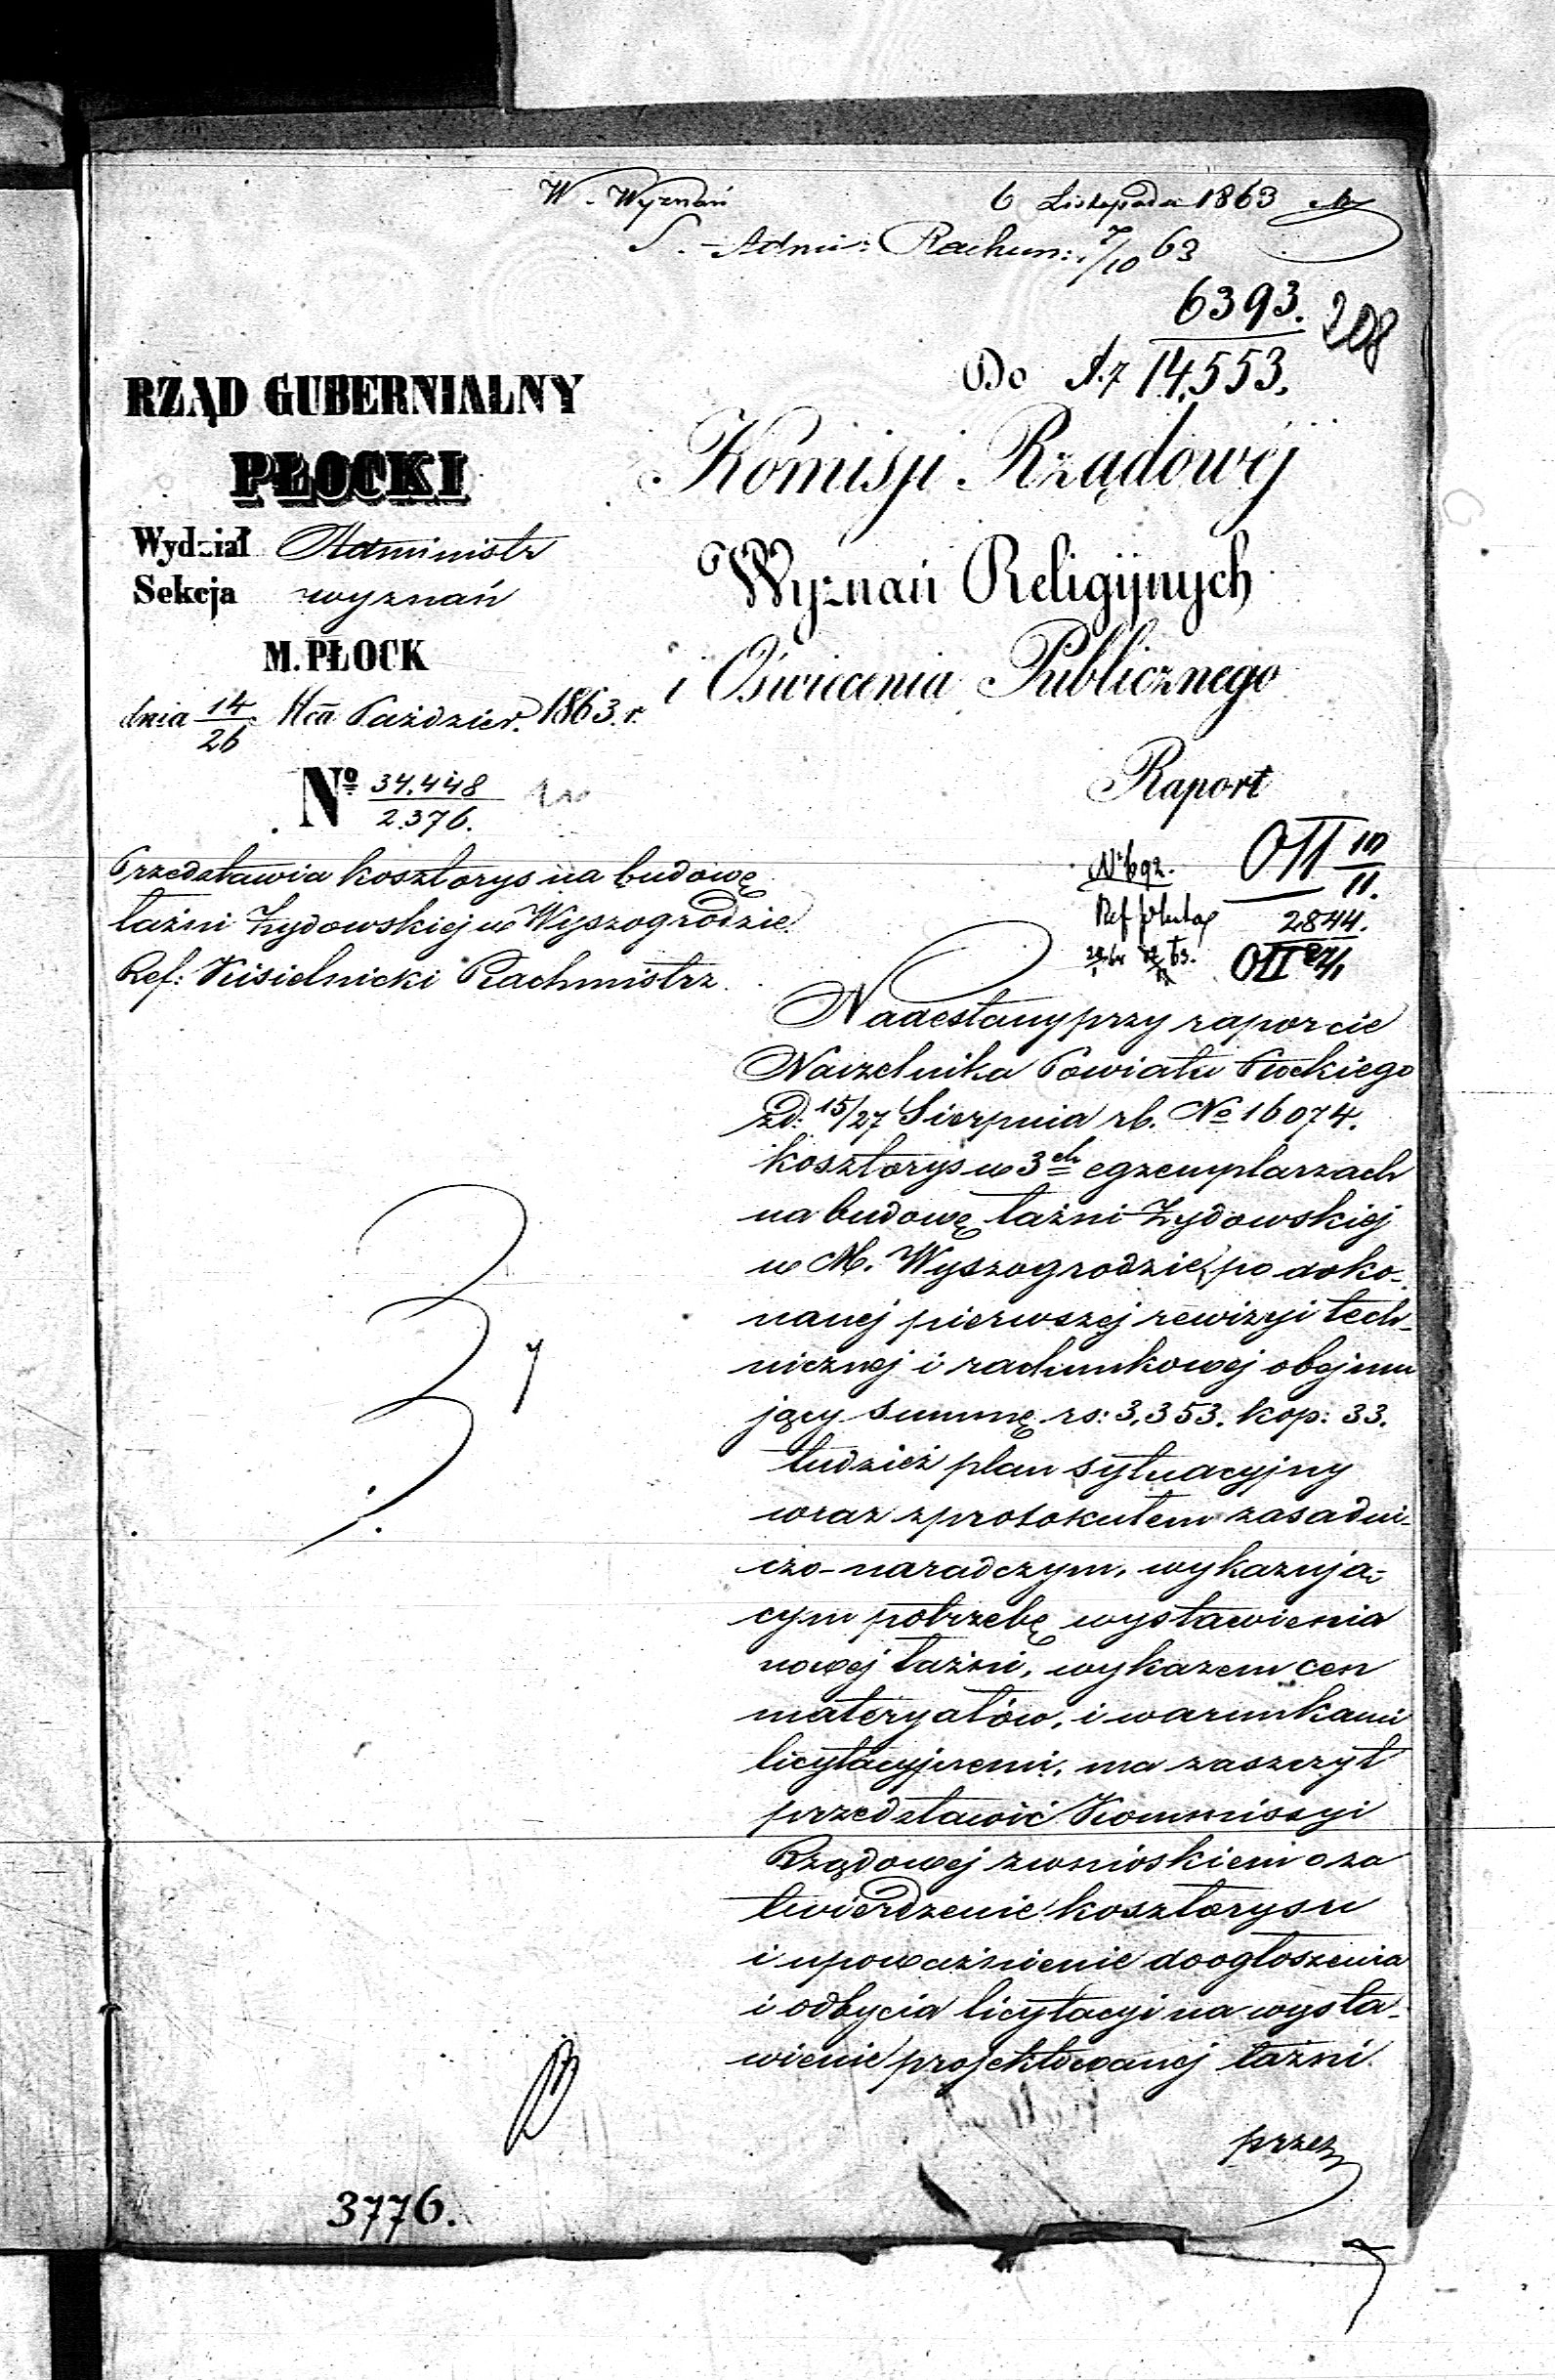 W. Wyznań
6 Listopada 1863
S. Admi: Rachun: 7/10 63
6393.
208
Do A.7 14,553.
RZĄD GUBERNIALNY
PŁOCKI
Wydział Administr
Sekcja wyznań
M. PŁOCK
dnia 14/26 Mca Paździer. 1863 r.
Nº 34.448
2.376.
Przedstawia kosztorys na budowę
łaźni Żydowskiej w Wyszogrodzie
Ref: Kisielnicki Rachmistrz
Komisji Rządowéj
Wyznań Religijnych
i Oświecenia Publicznego
Raport
Nº 692.
OII 10/11.
2844.
OII
Nadesłany przy raporcie
Naczelnika Powiatu Płockiego
zd: 15/27 Sierpnia rb. Nº 16074.
kosztorys w 3ch egzemplarzach
na budowę łaźni Żydowskiej
w M. Wyszogrodzie, po doko-
nanej pierwszej rewizyi tech-
nicznej i rachunkowej obejmu
jący summę rs: 3,353. kop: 33.
tudzież plan sytuacyjny
wraz z protokułem zasadni-
czo-naradczym, wykazują-
cym potrzebę wystawienia
nowej łaźni, wykazem cen
materyałów, i warunkami
licytacyjnemi, ma zaszczyt
przedstawić Kommissyi
Rządowej z wnioskiem o za
twierdzenie kosztorysu
i upoważnienie do ogłoszenia
i odbycia licytacyi na wysta-
wienie projektowanej łaźni
przez
3776.